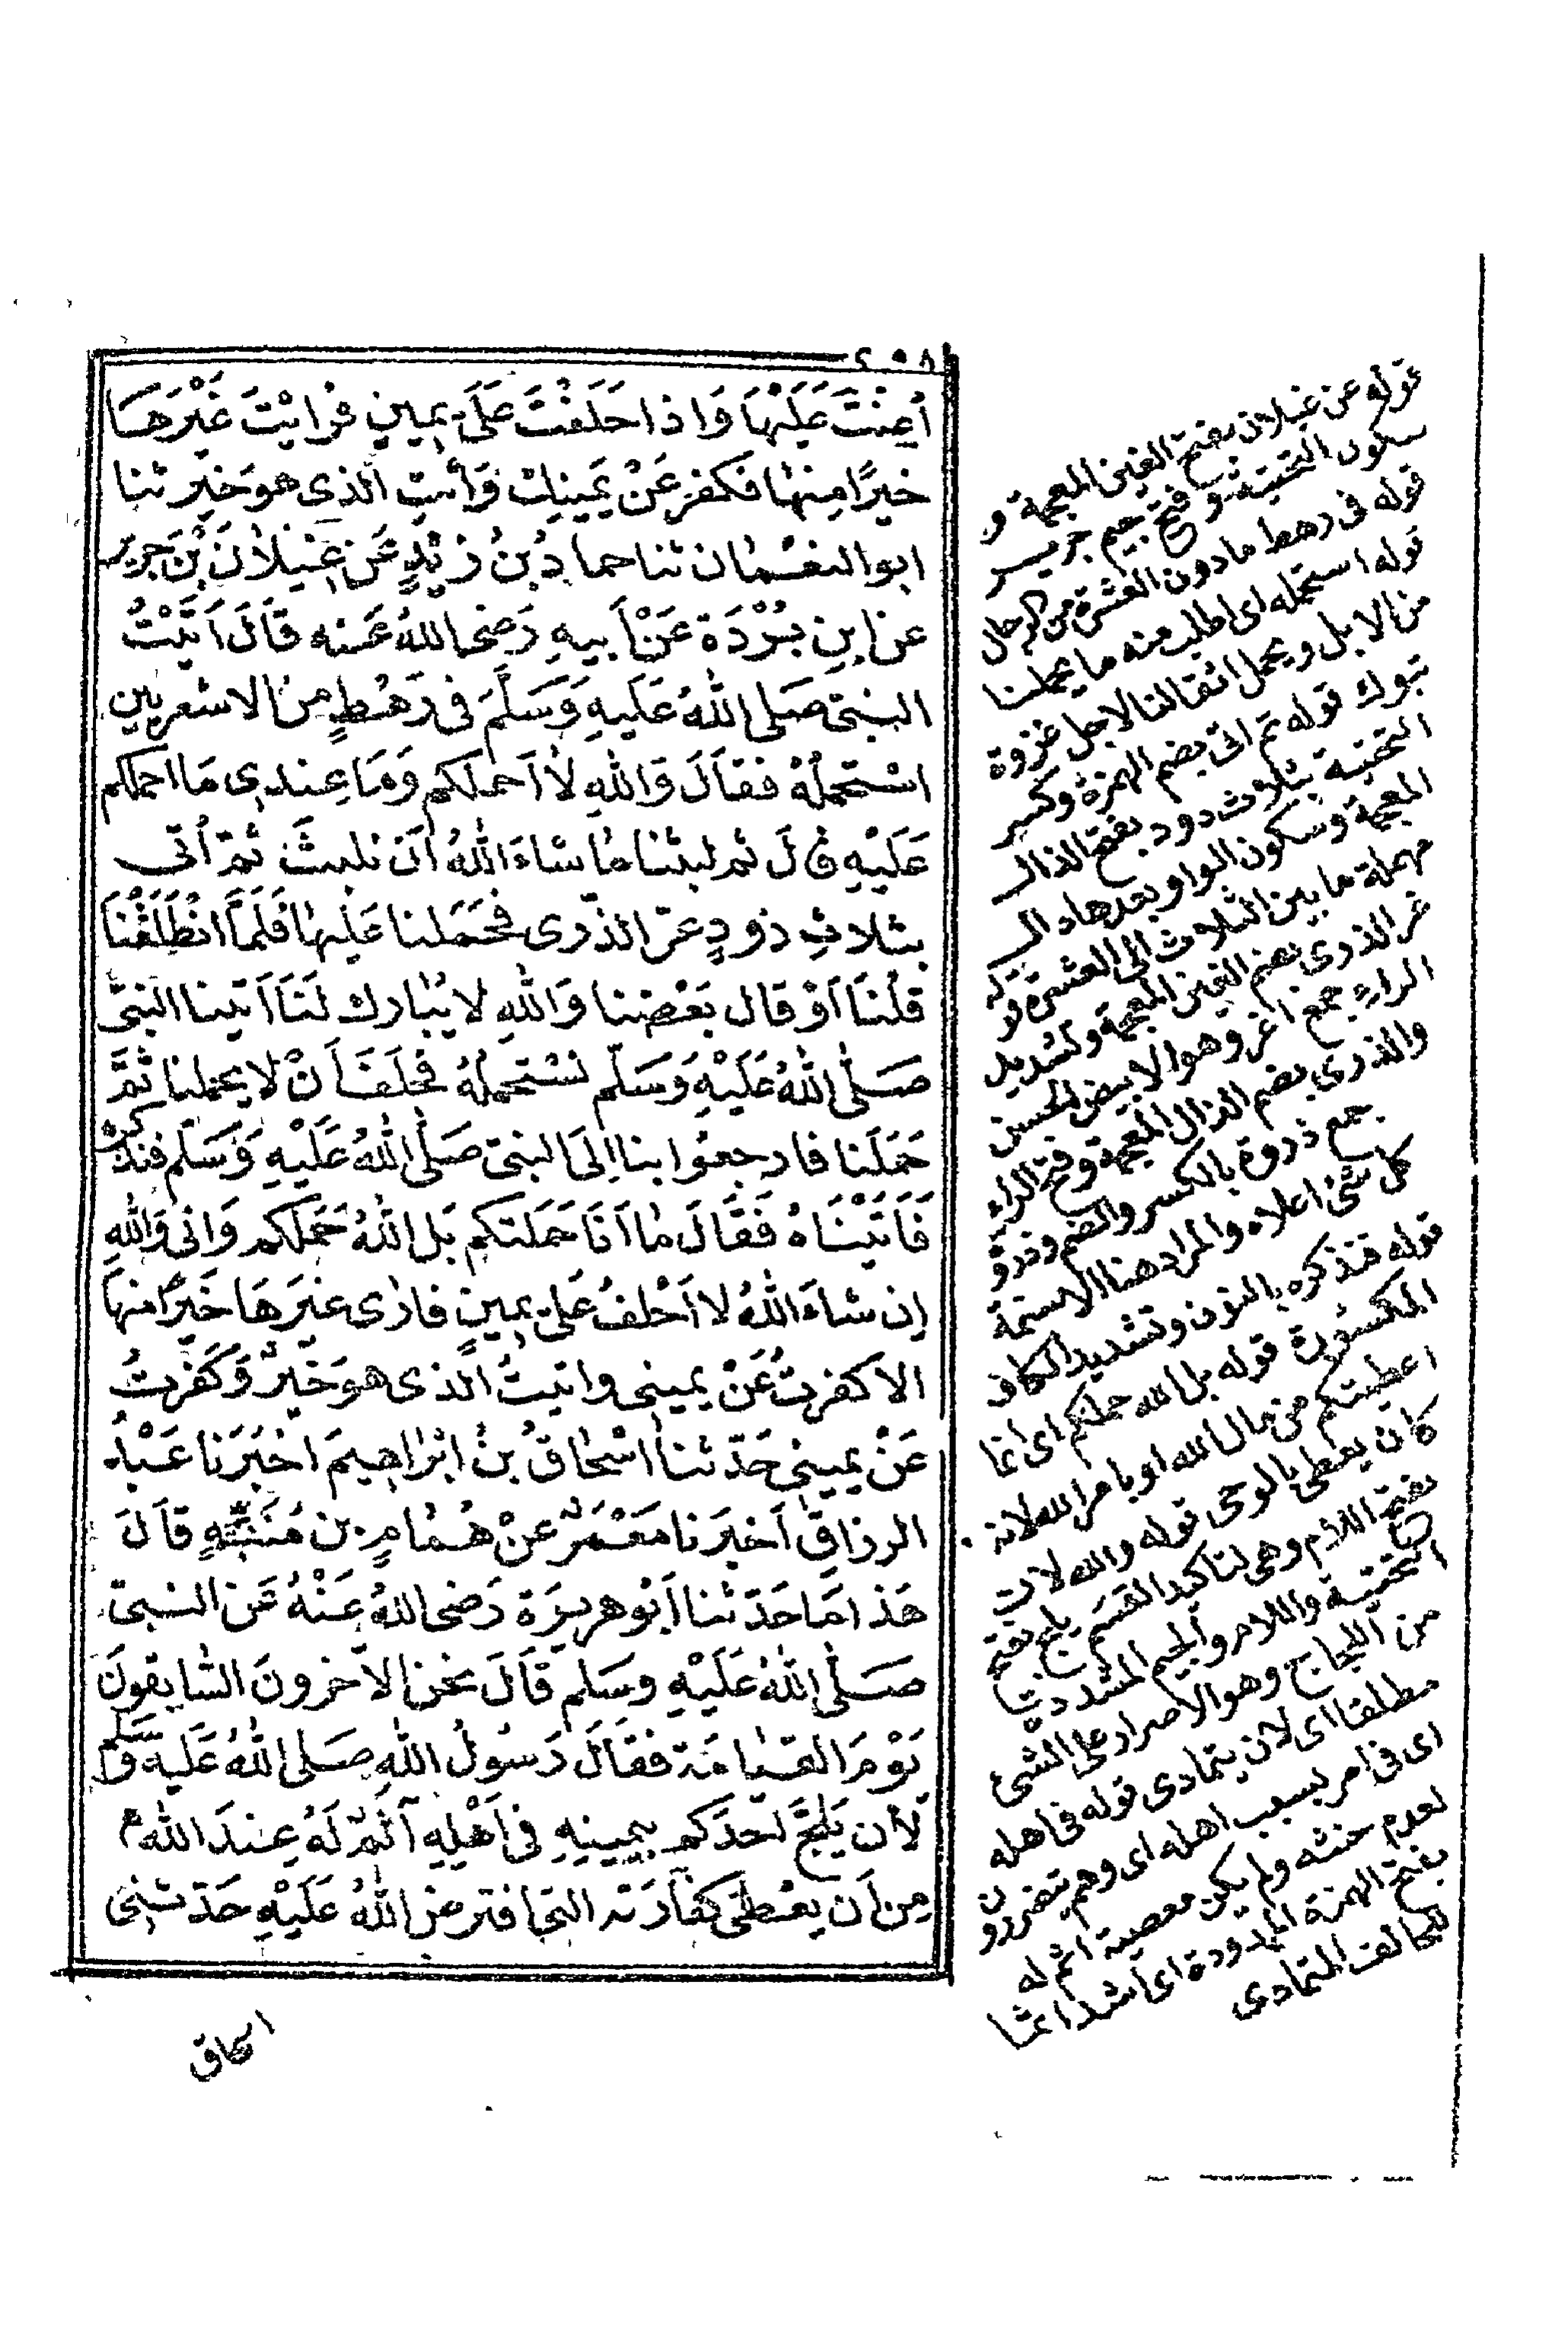 ٢٠٨
أُعِنْتَ عَلَيْهَا وَاِذَا حَلَفْتَ عَلَى يَمِينٍ فرايْتَ غَيْرَهَا
خَيْرًا مِنهَا فكفر عَنْ يَمينِكَ وَأْتِ الَّذِى هوَ خير ثنا
ابو النعْمَان ثنا حماد بْنُ زَيْدٍ عَن غَيْلَانَ بْنِ جرير
عن ابن بُرْدَة عَنْ اَبيهِ رَضِىَ اللهُ عَنه قَالَ اَتَيْتُ
النبىَّ صَلى اللهُ عَليهِ وَسَلَّمَ فى رَهْطٍ من الاشعريين
اسْتحمِلُهُ فقالَ وَاللهِ لَا اَحمِلُكم وَمَا عِندِى مَا احملكم
عَلَيْهِ قالَ ثم لبثنا مَا شاءَ اللهُ اَن نلبثَ ثُمَّ اُتى
بثلاثِ ذَودٍ غرّ الذّرى فحَمَلنا عَلَيهَا فَلَمَّا انْطَلَقْنَا
قلنَا اَوْ قال بَعْضُنا وَاللهِ لا يُبَارك لَنَا اَتينا النبىَّ
صَلَّى اللهُ عَلَيْهِ وَسَلَّم نَسْتحمِلهُ فحَلَفَ اَنْ لا يحملنا ثُمَّ
حَمَلَنا فارجعُوا بنا اِلَى النبىّ صَلَّى اللهُ عَلَيْهِ وَسَلّم فنذكره
فَاَتَيْنَاهُ فَقَالَ مَا اَنَا حَمَلتكم بَل اللهُ حَمَلكم وَانى وَاللهِ
اِن شاءَ اللهُ لا اَحْلفُ عَلَى يمينٍ فارَى غيرَهَا خَيرًا منهَا
الا كفرتُ عَنْ يمينى واتيتُ الّذى هوَ خَيْرٌ وَكَفرتُ
عَنْ يمينى حَدّثنَا اسْحَاقُ بنُ ابْرَاهيمَ اخبَرَنا عَبْدُ
الرزاقِ اَخبَرَنا مَعْمَرٌ عَنْ هُمَامٍ بن مُنَبِّهٍ قالَ
هَذا مَا حَدّثنا اَبُو هريرَة رَضِىَ اللهُ عَنْهُ عَن النبىّ
صَلَّى اللهُ عَلَيْهِ وسَلم قَالَ نحن الآخرونَ السَّابقونَ
يَوْمَ القيَامَة فقَالَ رَسُولُ اللهِ صَلى اللهُ عَلَيهِ وَسَلم
لَأن يَلجَّ اَحَدكم بيمينهِ فى اَهْلِهِ آثَمُ لَهُ عِندَ اللهِ
مِن اَن يعْطى كفارَته التى افترض اللهُ عَلَيْهِ حَدّثنى
اسحاق
قوله عن غيلان بفتح الغين المعجمة و
سكون التحتية وفتح جيم جرير
قوله فى رهط مادون العشرة من الرجال
قوله استحمله اى اطلب منه ما يحملنا
من الابل ويحمل اثقالنا لاجل غزوة
تبوك قوله ثم اتى بضم الهمزة وكسر
التحتية بثلاث ذود بفتح الذال
المعجمة وسكون الواو بعدها دال
مهملة ما بين الثلاث الى العشرة قوله
غر الذرى بضم الغين المعجمة وتشديد
الراء جمع اغر وهو الابيض الحسن
والذرى بضم الذال المعجمة وفتح الراء
جمع ذروة بالكسر والضم وذروة
كل شئ اعلاه والمراد هنا الاسنمة
قوله فنذكره بالنون وتشديد الكاف
المكسورة قوله بل الله حملكم اى انما
اعطيتكم من مال الله او بامر الله لانه
كان يعطى بالوحى قوله والله لان
بفتح اللام وهى لتاكيد القسم يلج بفتح
التحتية واللام والجيم المشددة
من اللجاج وهو الاصرار على الشئ
مطلقا اى لان يتمادى قوله فى اهله
اى فى امر بسبب اهله اى وهم يتضررون
لعدم حنثه ولم يكن معصية آثم له
بفتح الهمزة الممدودة اى اشد اثما
للحالف المتمادى